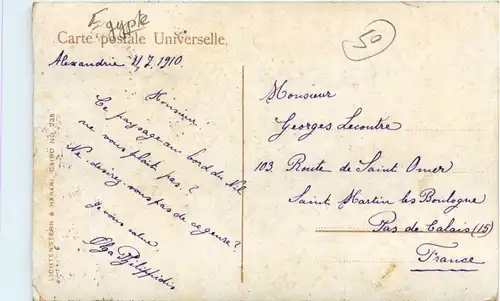 Egypte
50
Carte postale Universelle.
Alexandrie 11/7. 1910.
Monsieur
Ce paysage au bord du Nil
ne vous plait pas?
Ne desirez-vous pas de ce genre?
Je vous salue
Olga Philippidis
Monsieur
Georges Lecoutre
103. Route de Saint Omer
Saint Martin les Boulogne
Pas de Calais (15)
France
LICHTENSTERN & HARARI, CAIRO NO. 235